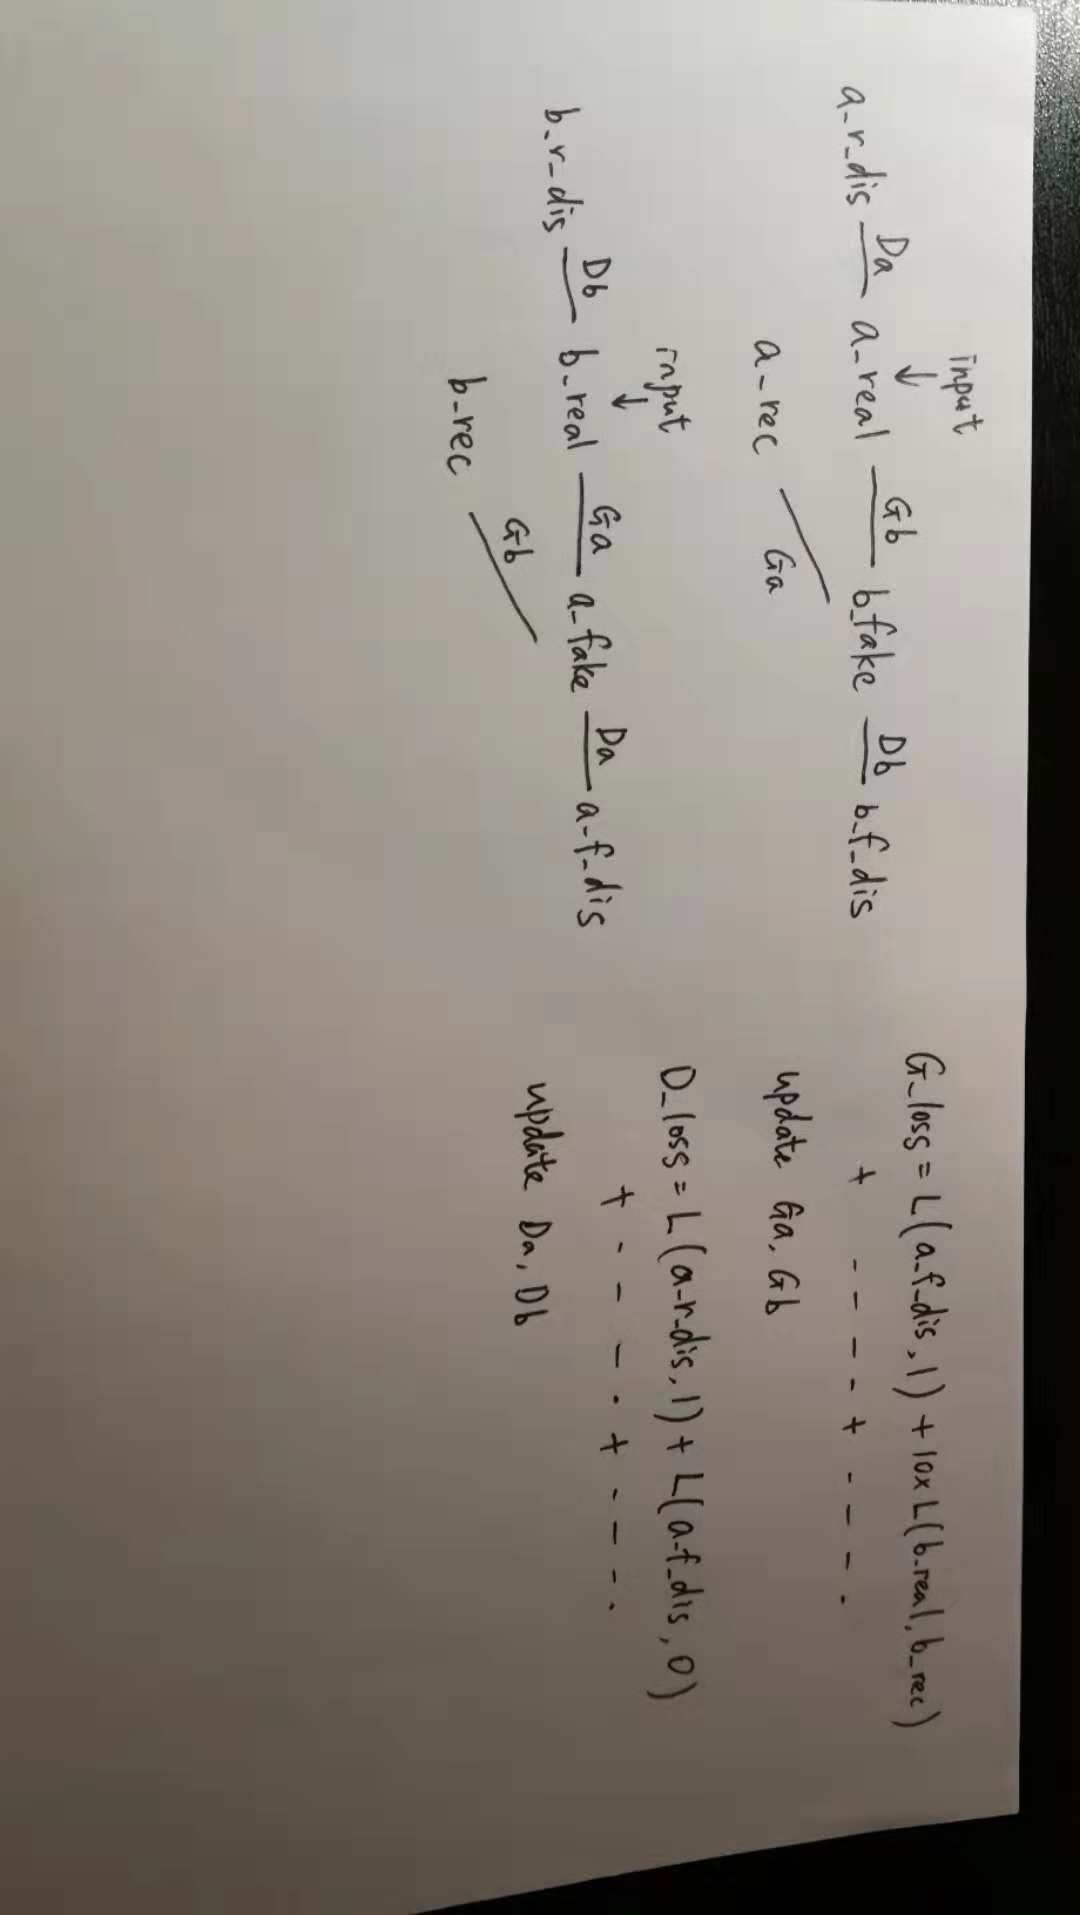 input
↓
a_r_dis Da a_real Gb b_fake Db b_f_dis
a_rec Ga
input
↓
b_r_dis Db b_real Ga a_fake Da a_f_dis
b_rec Gb
G_loss = L(a_f_dis, 1) + 10x L(b_real, b_rec)
+ - - - - + - - - .
update Ga, Gb
D_loss = L(a_r_dis, 1) + L(a_f_dis, 0)
+ - - - . + - - - .
update Da, Db